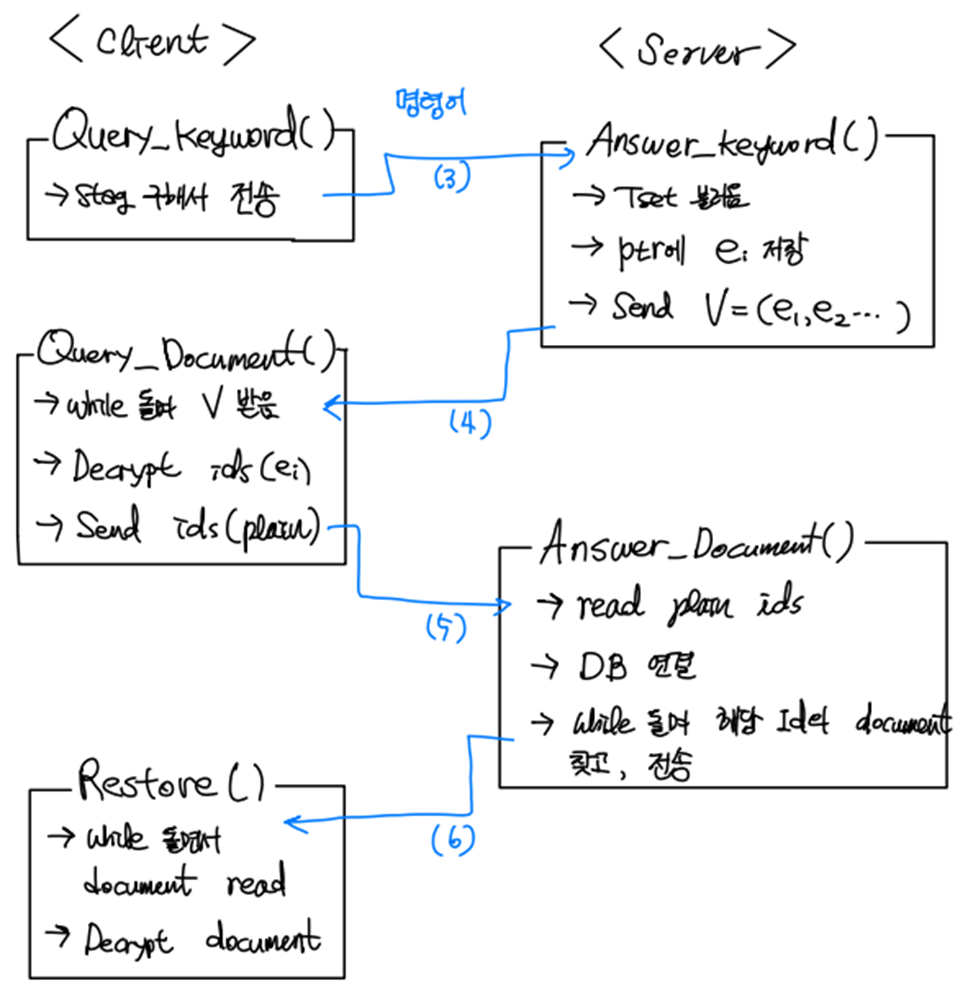 < Client >
< Server >
명령어
Query_keyword()
→ stag 구해서 전송
(3)
Answer_keyword()
→ Tset 불러옴
→ ptr에 eᵢ 저장
→ Send V=(e₁,e₂... )
(4)
Query_Document()
→ while 돌며 V 받음
→ Decrypt ids(eᵢ)
→ Send ids(plain)
(5)
Answer_Document()
→ read plain ids
→ DB 연결
→ while 돌며 해당 Id의 document
찾고, 전송
(6)
Restore()
→ while 돌면서
document read
→ Decrypt document